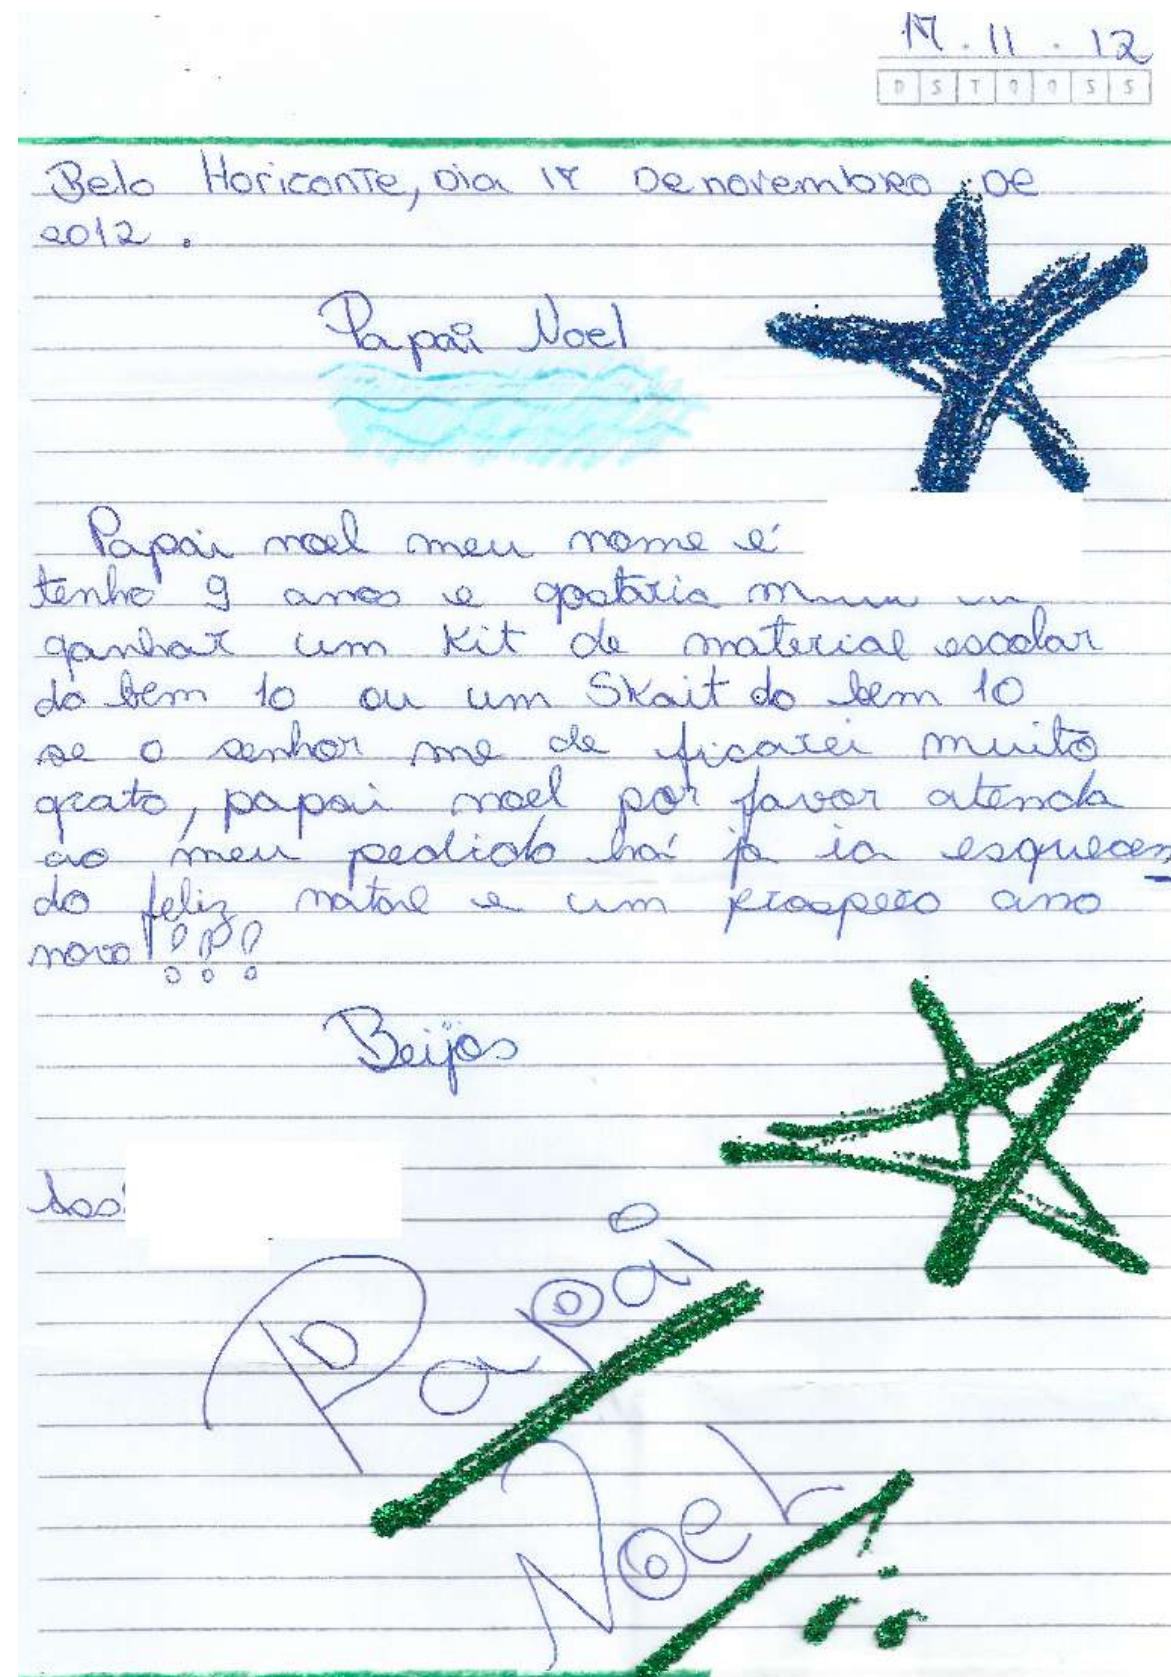 17.11.12
D S T Q Q S S
Belo Horiconte, Dia 17 De novembro De
2012.
Papai Noel
Papai noel meu nome é
tenho 9 anos e gostaria
ganhar um Kit de material escolar
do bem 10 ou um Skait do bem 10
se o senhor me de ficarei muito
grato, papai noel por favor atenda
ao meu pedido há já ia esquecen
do feliz natal e um prospero ano
novo!!!!
Beijos
Ass:
Papai
Noel